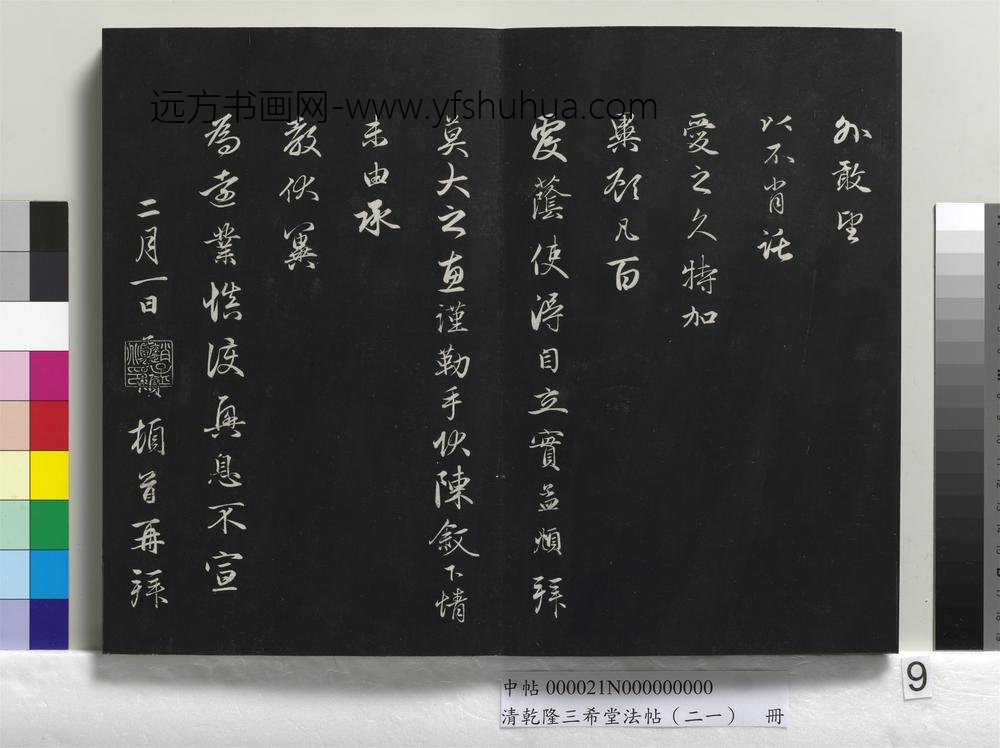 远方书画网-www.yfshuhua.com
外敢望
以不肖託
愛之久特加
顧凡百
覆蔭使得自立實孟頫拜
莫大之惠謹勒手狀陳敘下情
未由承
教伏冀
為遠業慎護興息不宣
二月一日孟頫頓首再拜
中帖 000021N000000000
清乾隆三希堂法帖（二一） 冊
9